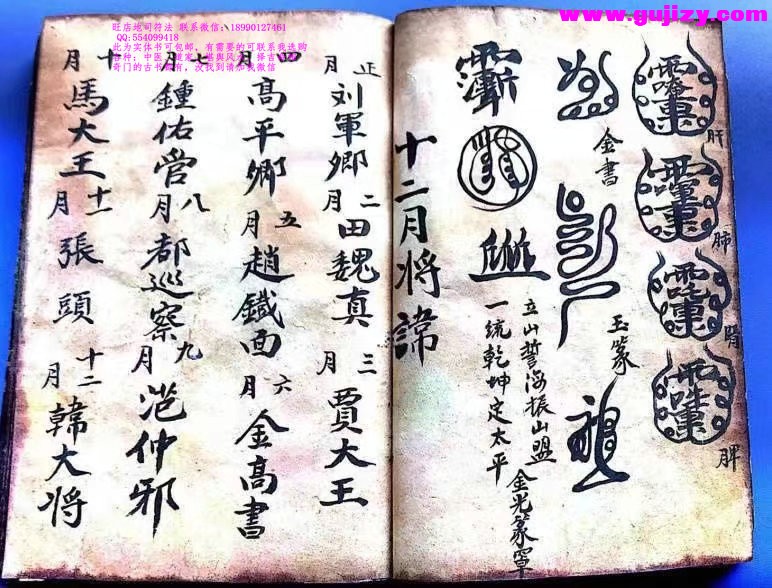 www.gujizy.com
旺店地司符法 联系微信：18990127461
QQ:554099418
此为实体书可包邮，有需要的可联系我选购
奇门的古书都有，没找到请加我微信
肝
肺
腎
脾
金書
玉篆
立山誓海振山盟
金光篆罩
一统乾坤定太平
十二月将諱
正月刘軍卿二月田魏真三月賈大王
四月高平卿五月趙鐵面六月金高書
七月鍾佑营八月都巡察九月范仲邪
十月馬大王十一月張頭十二月韓大将